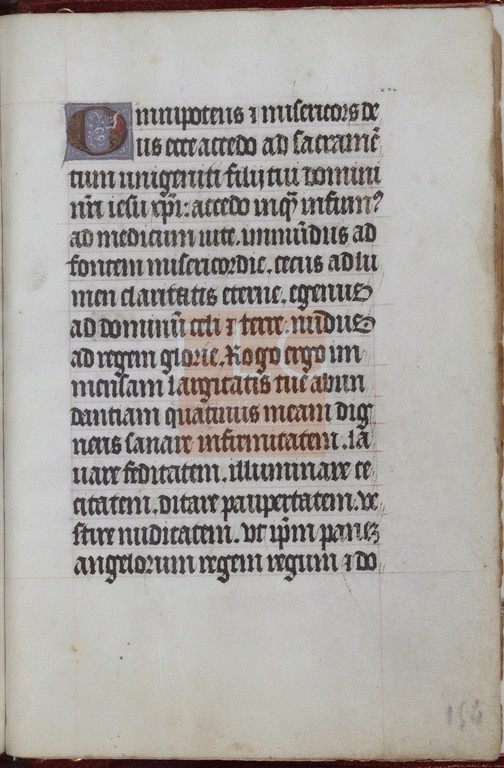 Omnipotens ⁊ misericors de
us ecce accedo ad sacramē
tum unigeniti filij tui domini
nr̄i iesu xp̄i: accedo inqͣ infirmꝰ
ad medicum uite. immūdus ad
fontem misericordie. cecus ad lu
men claritatis eterne. egenus
ad dominū celi ⁊ terre. nudus
ad regem glorie. Rogo ergo im
mensam largitatis tue abun
dantiam quatinus meam dig
neris sanare infirmitatem. la
uare feditatem. illuminare ce
citatem. ditare paupertatem. ve
stire nuditatem. vt ip̄m panē
angelorum regem regum ⁊ do
154